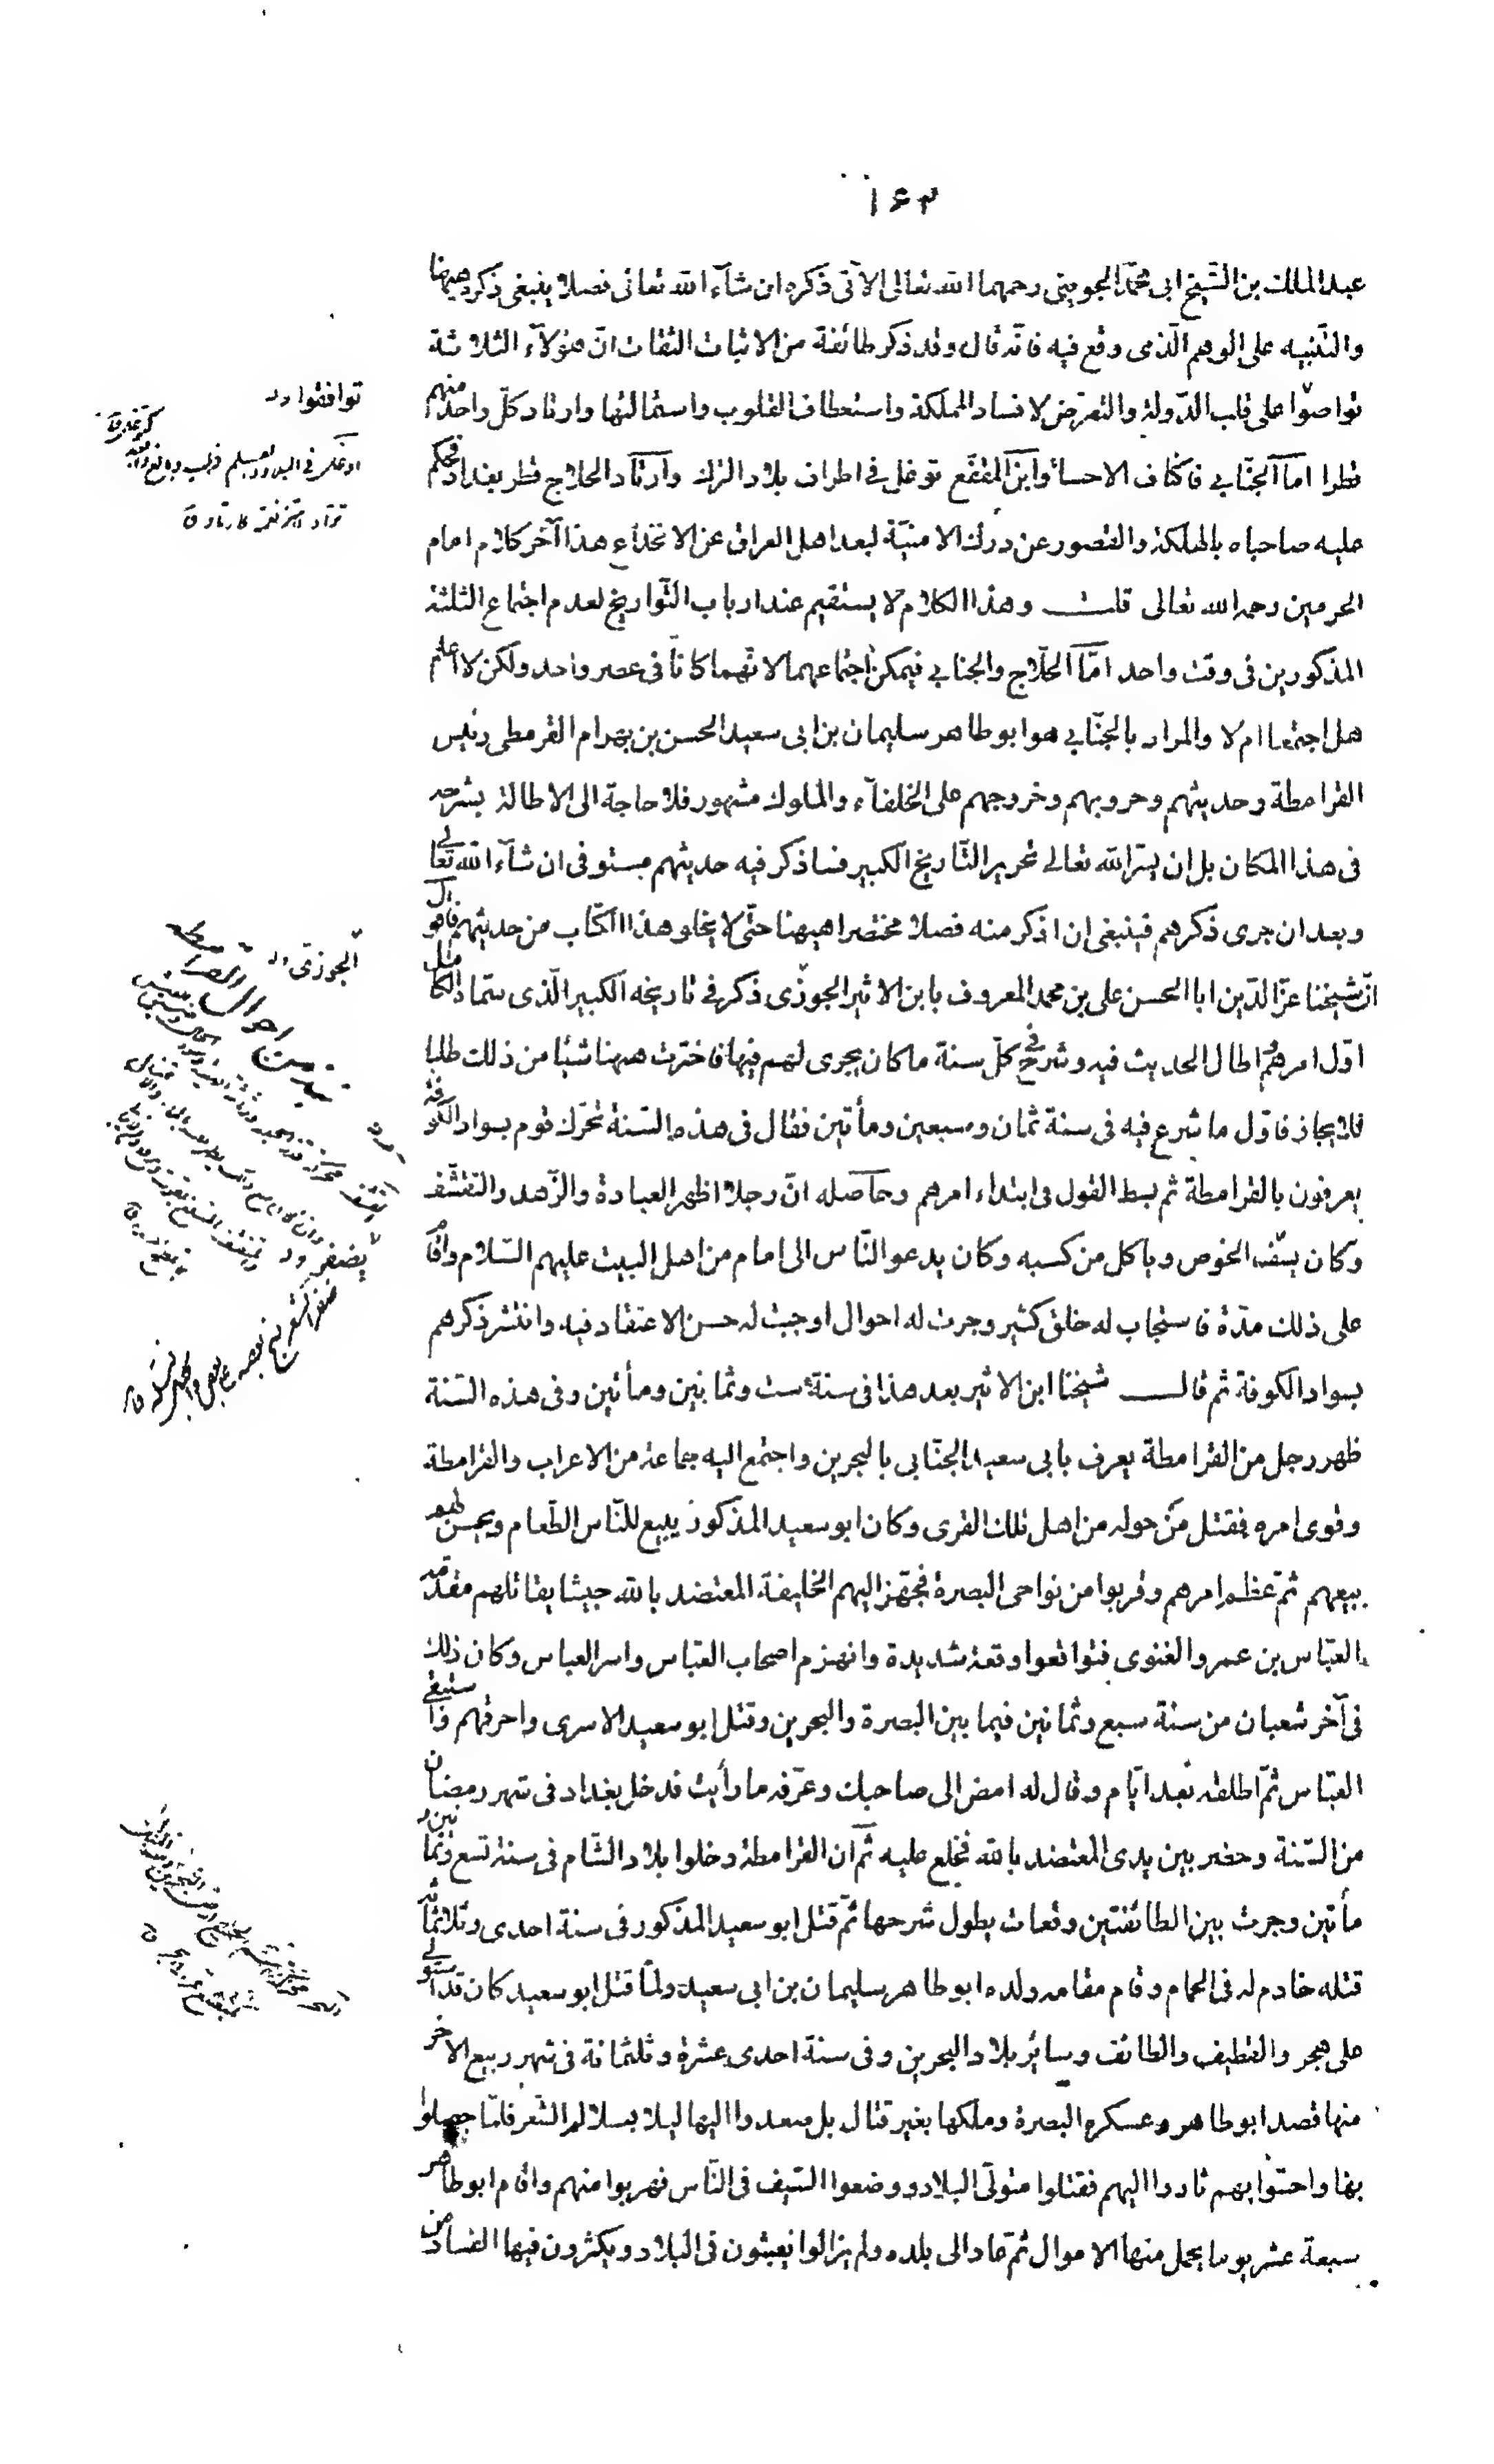 ١٦٣
عبد الملك بن الشيخ ابى محمّد الجوينى رحمهما الله تعالى الآتى ذكره ان شآء الله تعالى فصلا ينبغى ذكره هيهنا
والتّنبيه على الوهم الّذى وقع فيه فانّه قال وقد ذكر طائفة من الاثبات الثقات انّ هؤلآء الثلاثة
تواصوا على قلب الدّولة والتعرّض لافساد المملكة واستعطاف القلوب واستمالتها وارتاد كلّ واحد منهم
قطرا امّا الجنّابى فاكناف الاحسا وابن المقفّع توغل فى اطراف بلاد الترك وارتاد الحلاج قطر بغداد فحكم
عليه صاحباه بالهلكة والقصور عن درك الامنيّة لبعد اهل العراق عن الانخداع هذا آخر كلام امام
الحرمين رحمه الله تعالى قلت وهذا الكلام لا يستقيم عند ارباب التّواريخ لعدم اجتماع الثلثة
المذكورين فى وقت واحد امّا الحلّاج والجنابى فيمكن اجتماعهما لانّهما كانا فى عصر واحد ولكن لا اعلم
هل اجتمعا ام لا والمراد بالجنّابى هو ابو طاهر سليمان بن ابى سعيد الحسن بن بهرام القرمطى رئيس
القرامطة وحديثهم وحروبهم وخروجهم على الخلفآء والملوك مشهور فلا حاجة الى الاطالة بشرحه
فى هذا المكان بل ان يسّر الله تعالى تحرير التّاريخ الكبير فساذكر فيه حديثهم مستوفى ان شآء الله تعالى
وبعد ان جرى ذكرهم فينبغى ان اذكر منه فصلا مختصرا هيهنا حتّى لا يخلو هذا الكتاب من حديثهم فاقول
انّ شيخنا عزّ الدّين ابا الحسن على بن محمد المعروف بابن الاثير الجوزى ذكر فى تاريخه الكبير الّذى سمّاه الكامل
اوّل امرهم واطال الحديث فيه وشرح فى كلّ سنة ما كان يجرى لهم فيها فاخترت ههنا شيئا من ذلك طلبا
للايجاز فاوّل ما شرع فيه فى سنة ثمان وسبعين ومأتين فقال فى هذه السّنة تحرّك قوم بسواد الكوفة
يعرفون بالقرامطة ثم بسط القول فى ابتداء امرهم وحاصله انّ رجلا اظهر العبادة والزّهد والتقشّف
وكان يسفّ الخوص وياكل من كسبه وكان يدعو النّاس الى امام من اهل البيت عليهم السّلام واقام
على ذلك مدّة فاستجاب له خلق كثير وجرت له احوال اوجبت له حسن الاعتقاد فيه وانتشر ذكرهم
بسواد الكوفة ثم قال شيخنا ابن الاثير بعد هذا فى سنة ست وثمانين ومأتين وفى هذه السّنة
ظهر رجل من القرامطة يعرف بابى سعيد الجنّابى بالبحرين واجتمع اليه جماعة من الاعراب والقرامطة
وقوى امره فقتل من حوله من اهل تلك القرى وكان ابو سعيد المذكور يبيع للنّاس الطّعام ويحسن لهم
بيعهم ثمّ عظم امرهم وقربوا من نواحى البصرة فجهّز اليهم الخليفة المعتضد بالله جيشا يقاتلهم مقدّمه
العبّاس بن عمرو الغنوى فتواقعوا وقعة شديدة وانهزم اصحاب العبّاس واسر العباس وكان ذلك
فى آخر شعبان من سنة سبع وثمانين فيما بين البصرة والبحرين وقتل ابو سعيد الاسرى واحرقهم واستبقى
العبّاس ثمّ اطلقه بعد ايّام وقال له امض الى صاحبك وعرّفه ما رأيت فدخل بغداد فى شهر رمضان
من السّنة وحضر بين يدى المعتضد بالله فخلع عليه ثمّ ان القرامطة دخلوا بلاد الشّام فى سنة تسع وثمانين و
مأتين وجرت بين الطائفتين وقعات يطول شرحها ثمّ قتل ابو سعيد المذكور فى سنة احدى وثلاثمائة
قتله خادم له فى الحمام وقام مقامه ولده ابو طاهر سليمان بن ابى سعيد ولمّا قتل ابو سعيد كان قد استولى
على هجر والقطيف والطائف وسائر بلاد البحرين وفى سنة احدى عشرة وثلثمائة فى شهر ربيع الآخر
منها قصد ابو طاهر وعسكره البصرة وملكها بغير قتال بل صعدوا اليها ليلا بسلالم الشّعر فلمّا حصلوا
بها واحسّوا بهم ثاروا اليهم فقتلوا متولّى البلاد ووضعوا السّيف فى النّاس فهربوا منهم واقام ابو طاهر
سبعة عشر يوما يحمل منها الاموال ثمّ عاد الى بلده ولم يزالوا يعيثون فى البلاد ويكثرون فيها الفساد من
توافقوا
الجوزى
يضفر